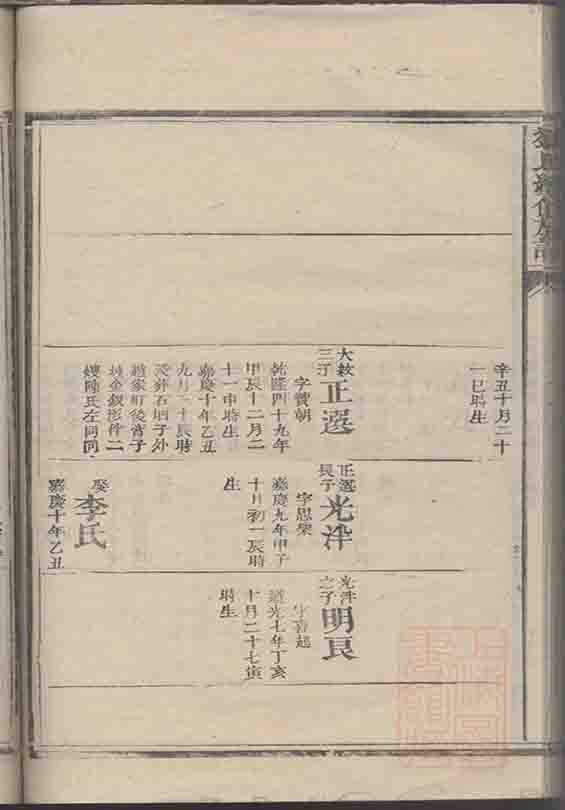 辛丑十月二十
一巳時生
大敘
三子
正選
字寶朝
乾隆四十九年
甲辰十二月二
十一申時生
嘉慶十年乙丑
九月二十辰時
歿葬石垻子外
趙家
後
子
金釵形件二
塿陳氏左同向
正選
長子
光泮
字思樂
嘉慶九年甲子
十月初一辰時
生
娶
李氏
嘉慶十年乙丑
光泮
之子
明良
起
道光七年丁亥
十月二十七寅
時生